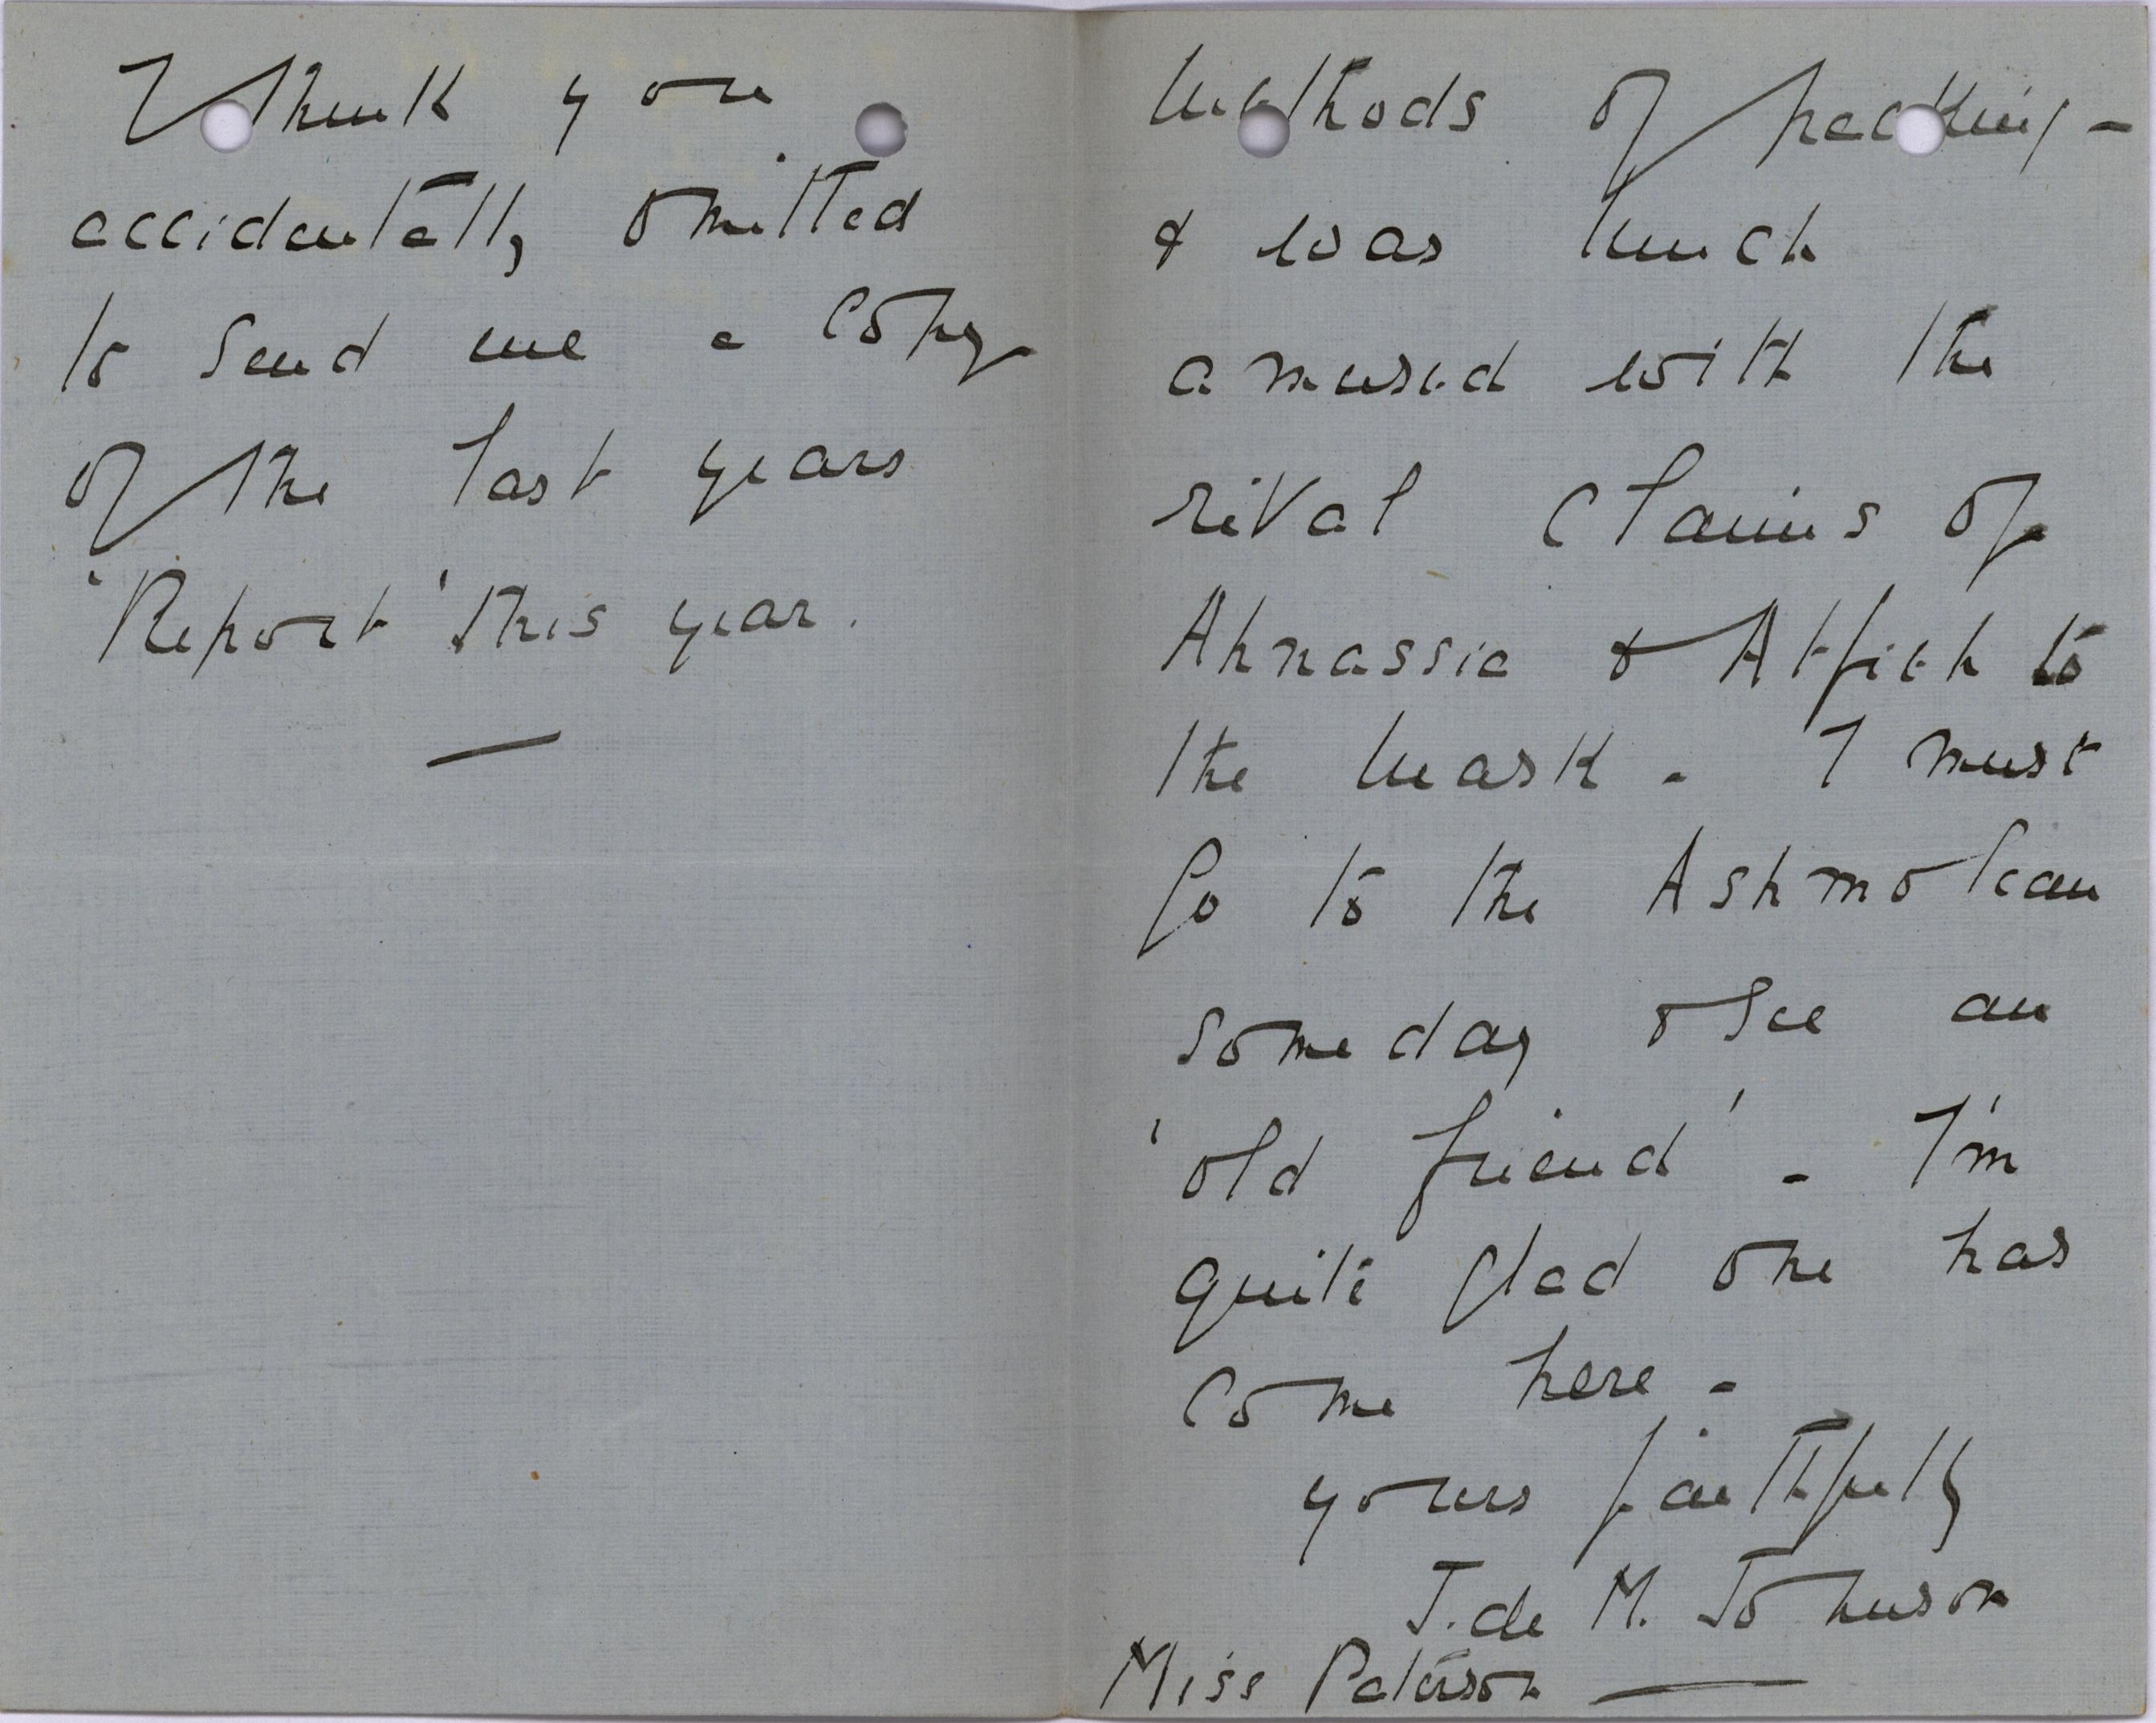 I think you
accidentally omitted
to send me a copy
of the last years
'Report' this year.
—
methods of packing –
& was much
amused with the
rival claims of
Ahnassia & Atfieh to
the mask – I must
go to the Ashmolean
someday & see an
'old friend' – I'm
quite glad one has
come here –
yours faithfully
J. de M. Johnson
Miss Paterson —